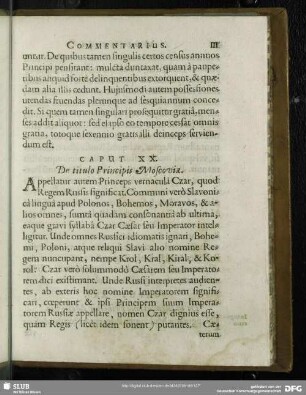 COMMENTARIUS. III
untur. De quibus tamen singulis certos census annuos
Principi pensitant: mulcta duntaxat, quam à paupe-
ribus aliquid fortè delinquentibus extorquent, & quæ-
dam alia illis cedunt. Hujusmodi autem possessiones
utendas fruendas plerunque ad sesquiannum conce-
dit. Si quem tamen singulari prosequitur gratiâ, men-
ses addit aliquot: sed elapso eo tempore cessat omnis
gratia, totoque sexennio gratis illi deinceps servien-
dum est.
CAPUT XX.
De titulo Principis Moscoviæ.
Appellatur autem Princeps vernaculè Czar, quod
Regem Russis significat. Communi verò Slavoni-
câ linguâ apud Polonos, Bohemos, Moravos, & a-
lios omnes, sumtâ quadam consonantiâ ab ultima,
eaque gravi syllabâ Czar Cæsar seu Imperator intel-
ligitur. Unde omnes Russici idiomatis ignari, Bohe-
mi, Poloni, atque reliqui Slavi alio nomine Re-
gem nuncupant, nempe Krol, Kral, Kiral, & Ko-
rol: Czar verò solummodò Cæsarem seu Imperato-
rem dici existimant. Unde Russi interpretes audien-
tes, ab exteris hoc nomine Imperatorem signifi-
cari, cœperunt & ipsi Principem suum Impera-
torem Russiæ appellare, nomen Czar dignius esse,
quàm Regis (licèt idem sonent) putantes. Cæ-
terum
SLUB